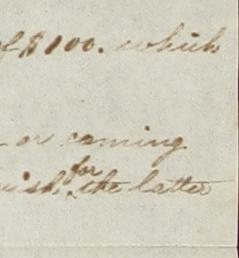 of $100. which
or coming
wish for the latter